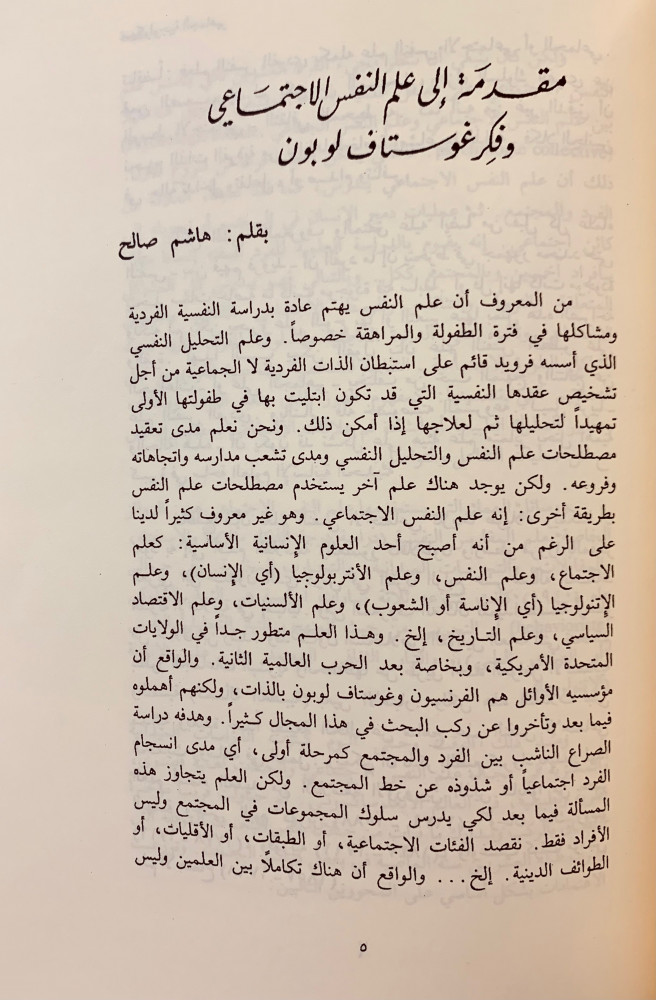 مقدمة إلى علم النفس الاجتماعي
وفكر غوستاف لوبون
بقلم: هاشم صالح
من المعروف أن علم النفس يهتم عادة بدراسة النفسية الفردية
ومشاكلها في فترة الطفولة والمراهقة خصوصاً. وعلم التحليل النفسي
الذي أسسه فرويد قائم على استبطان الذات الفردية لا الجماعية من أجل
تشخيص عقدها النفسية التي قد تكون ابتليت بها في طفولتها الأولى
تمهيداً لتحليلها ثم لعلاجها إذا أمكن ذلك. ونحن نعلم مدى تعقيد
مصطلحات علم النفس والتحليل النفسي ومدى تشعب مدارسه واتجاهاته
وفروعه. ولكن يوجد هناك علم آخر يستخدم مصطلحات علم النفس
بطريقة أخرى: إنه علم النفس الاجتماعي. وهو غير معروف كثيراً لدينا
على الرغم من أنه أصبح أحد العلوم الإنسانية الأساسية: كعلم
الاجتماع، وعلم النفس، وعلم الأنتربولوجيا (أي الإنسان)، وعلـم
الإتنولوجيا (أي الإناسة أو الشعوب)، وعلم الألسنيات، وعلم الاقتصاد
السياسي، وعلم التـاريخ، إلخ. وهـذا العلـم متطور جـداً في الولايات
المتحدة الأمريكية، وبخاصة بعد الحرب العالمية الثانية. والواقع أن
مؤسسيه الأوائل هم الفرنسيون وغوستاف لوبون بالذات، ولكنهم أهملوه
فيما بعد وتأخروا عن ركب البحث في هذا المجال كـثيراً. وهدفه دراسة
الصراع الناشب بين الفرد والمجتمع كمرحلة أولى، أي مدى انسجام
الفرد اجتماعياً أو شذوذه عن خط المجتمع. ولكن العلم يتجاوز هذه
المسألة فيما بعد لكي يدرس سلوك المجموعات في المجتمع وليس
الأفراد فقط. نقصد الفئات الاجتماعية، أو الطبقات، أو الأقليات، أو
الطوائف الدينية. إلخ... والواقع أن هناك تكاملاً بين العلمين وليس
٥